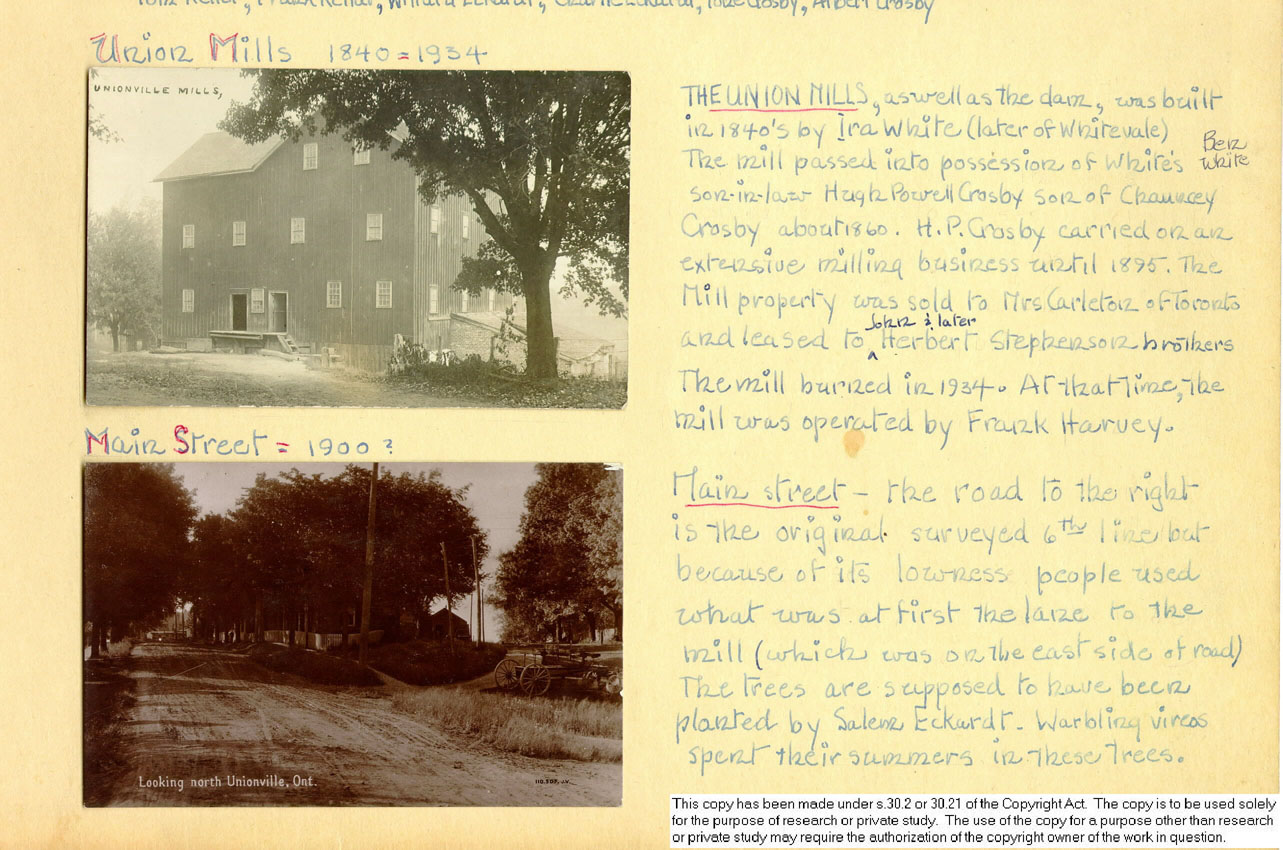 Tom Keller, Frank Kellar, Willard Eckardt, Charlie Eckardt, Tone Crosby, Albert Crosby
Union Mills 1840 = 1934
UNIONVILLE MILLS,
THE UNION MILLS, as well as the dam, was built
in 1840's by Ira White (later of Whitevale)
Ben
White
The mill passed into possession of White's
son-in-law Hugh Powell Crosby son of Chauncey
Crosby about 1860. H.P. Crosby carried on an
extensive milling business until 1895. The
Mill property was sold to Mrs Carleton of Toronto
John & later
and leased to ^ Herbert Stephenson brothers
The mill burned in 1934. At that time, the
mill was operated by Frank Harvey.
Main Street = 1900?
Looking north Unionville, Ont.
Main street – the road to the right
is the original surveyed 6th line but
because of its lowness people used
what was at first the lane to the
mill (which was on the east side of road)
The trees are supposed to have been
planted by Salem Eckardt. Warbling vireos
spent their summers in these trees.
This copy has been made under s.30.2 or 30.21 of the Copyright Act. The copy is to be used solely
for the purpose of research or private study. The use of the copy for a purpose other than research
or private study may require the authorization of the copyright owner of the work in question.